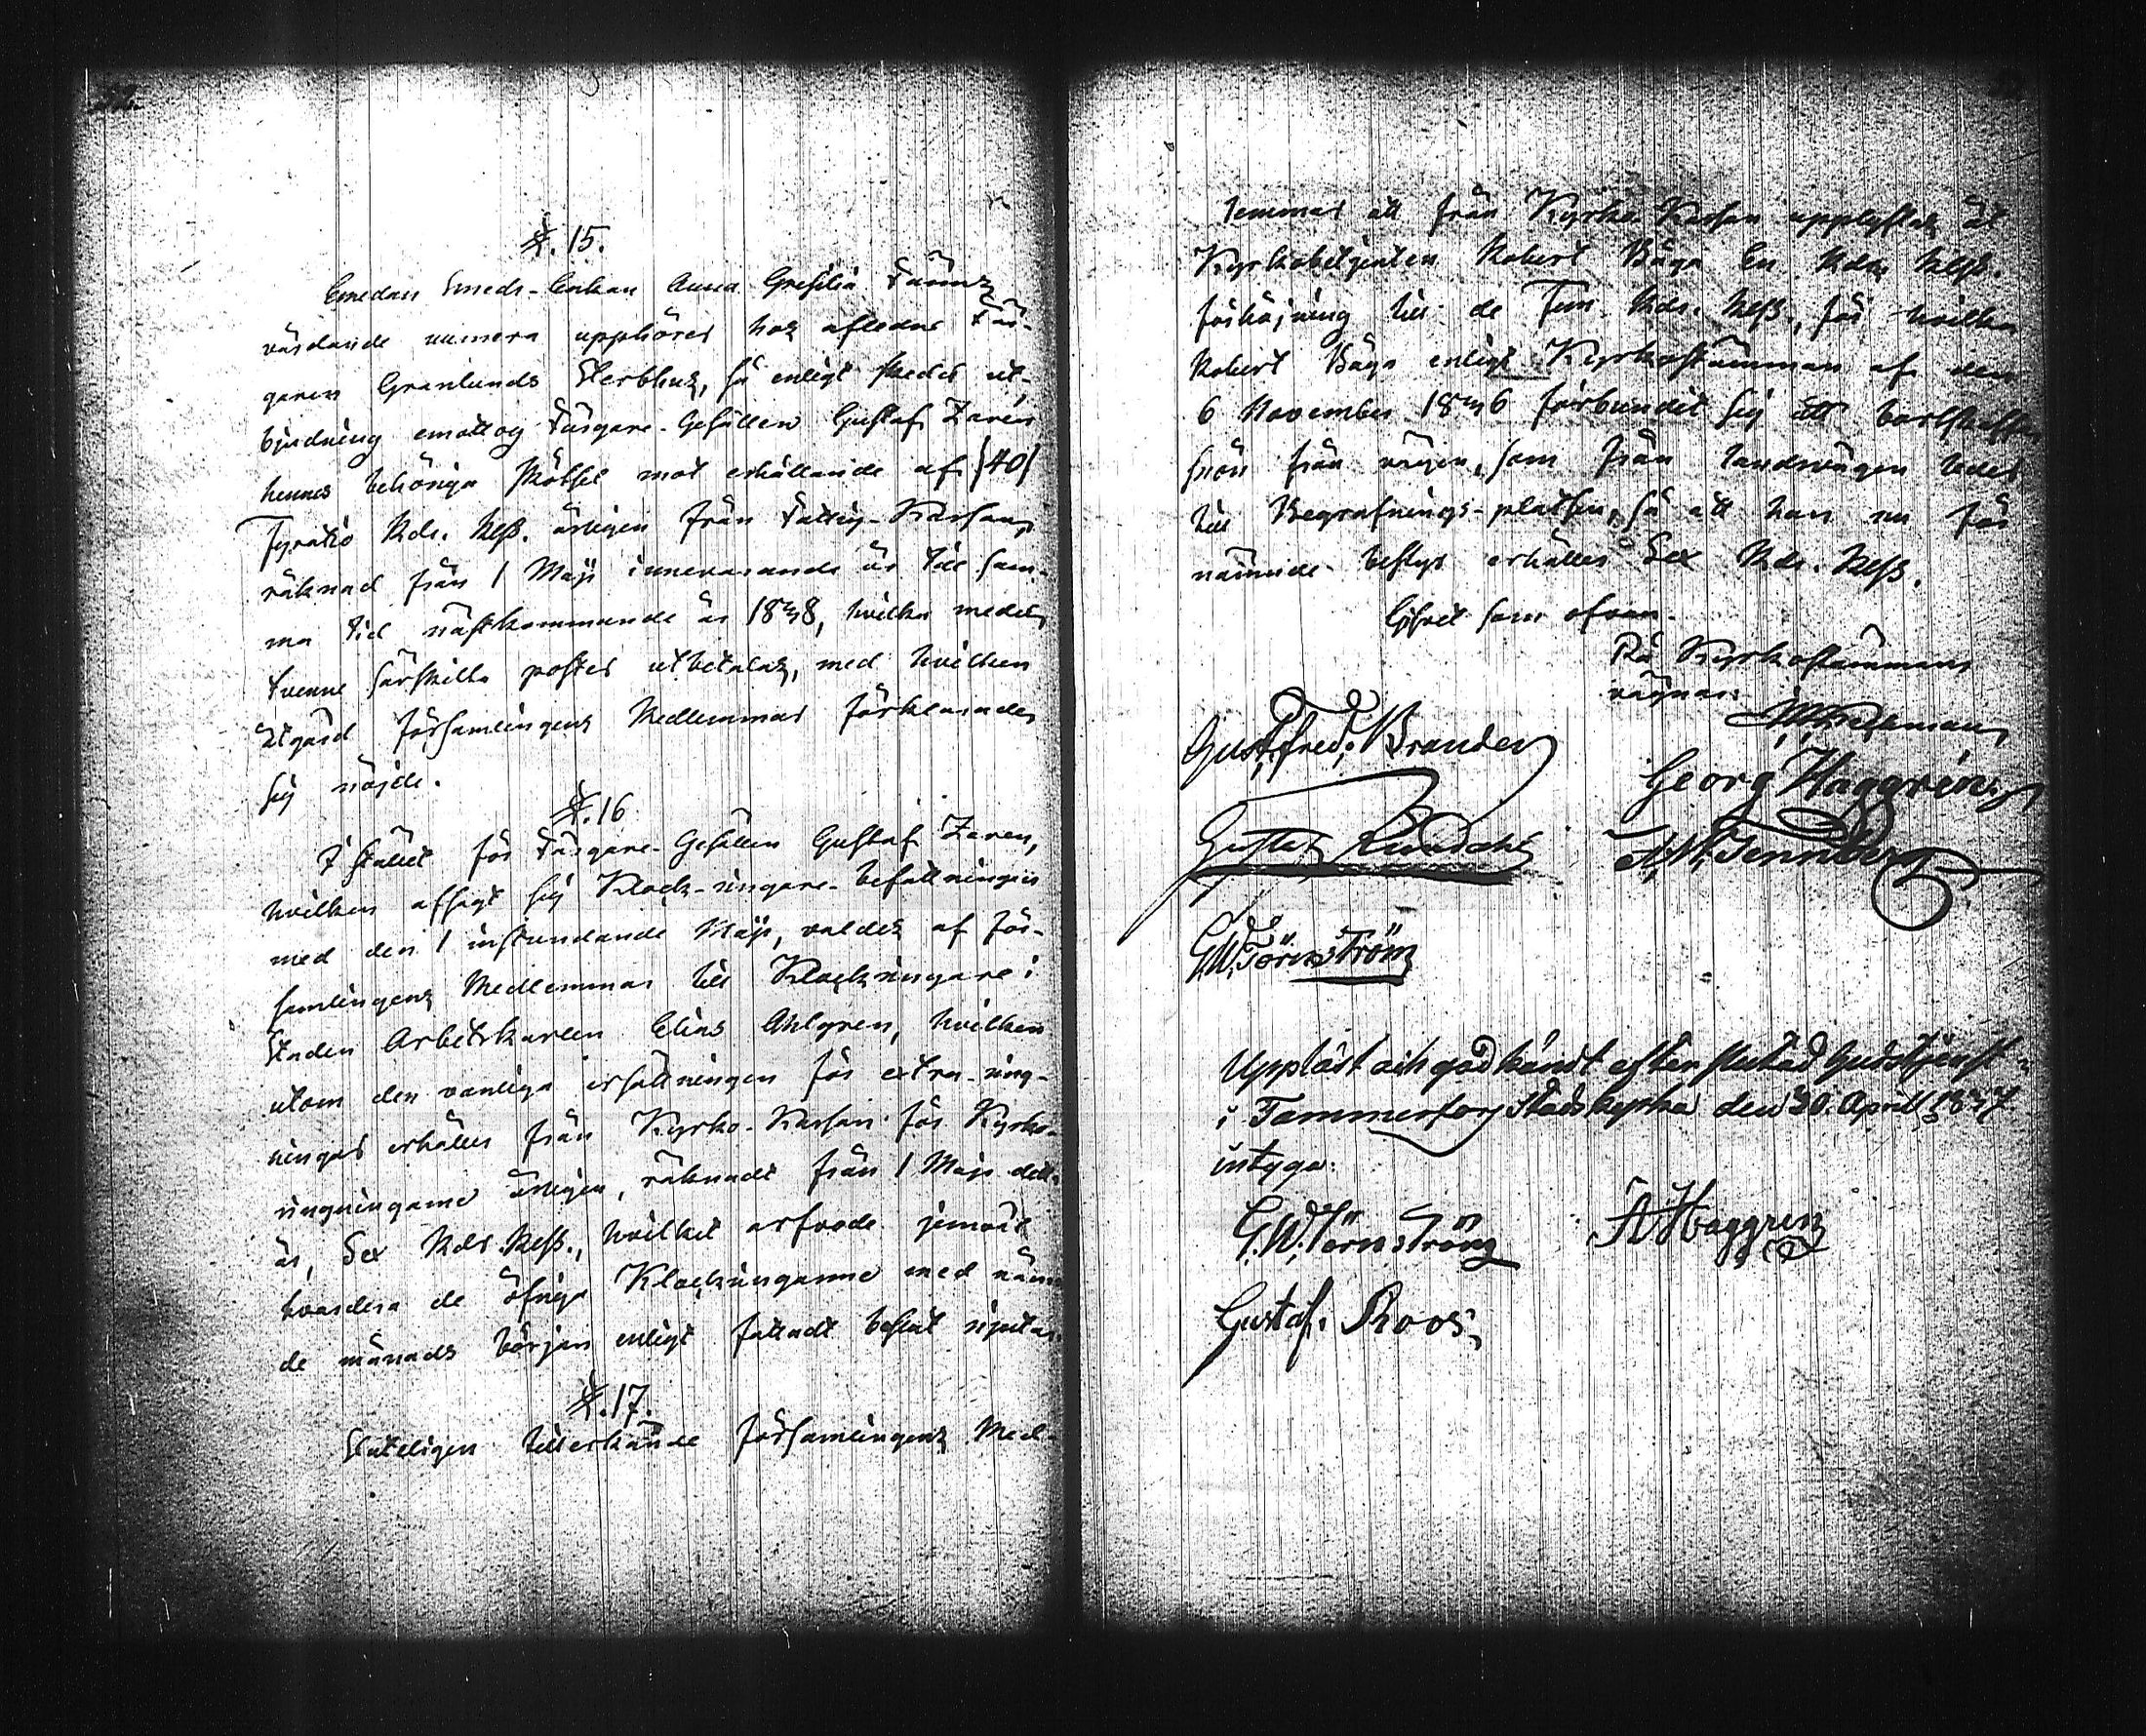 §.15.
Emedan Smeds-Enkan Anna Grefilia Fännz
vårdande numera upphörer hoz afledne Fär-
garen Granlunds Sterbhuz, så enligt skedd ut-
bjudning emottog Färgare-Gesällen Gustaf Zarén
hennes behöriga skötsel mot erhållande af (40)
Fyratio Rdr. Rgß. årligen från Fattig-Kassan,
räknad från 1 Maji innevarande år till sam-
ma tid nästkommande år 1838, hvilka medel,
tvenne särskilta poster utbetalaz, med hvilken
åtgärd Församlingenz Medlemmar förklarade
sig nöjde.
§.16
I stället för Färgare-Gesällen Gustaf Zaren,
hvilken afsagt sig Klock-ringare-befattningen
med den 1 instundande Maji, valdez af För-
samlingenz Medlemmar till Klockringare i
Staden Arbetskarlen Elias Ahlgren, hvilken
utom den vanliga ersättningen för extra-ring-
ningar erhåller från Kyrko-Kassan för Kyrko-
ringningarne årligen, räknadt från 1 Maji detta
år, Sex Rdr. Rgß., hvilket arfvode jemväl
hvardera de öfriga Klockringarne med nämn
de månads början enligt fattadt beslut njuta.
§.17.
Sluteligen tillerkände Församlingenz Med-
lemmar att från Kyrko-Kassan upplyftez åt
Kyrkobetjenten Robert Båga En Rdr Rgß.
förhöjning till de Fem Rdr. Rgß., för hvilka
Robert Båga enligt Kyrkostämman af den
6 November 1836 förbundit sig att bortskaffa
snön från vägen, som från landsvägen leder
till Begrafnings-platsen, så att han nu för
nämnde bestyr erhåller Sex Rdr. Rgß.
Giffvet som ofvan.
På Kyrkostämmans
vägnar:
Gust. Fred. Brander
Georg Haggrén
Gustaf
G.W. Törnström
Uppläst och godkändt efter slutad Gudstjenst
i Tammerfors Stadskyrka den 30. April 1837
intyga:
G.W. Törnström
A Haggren
Gustaf. Roos.